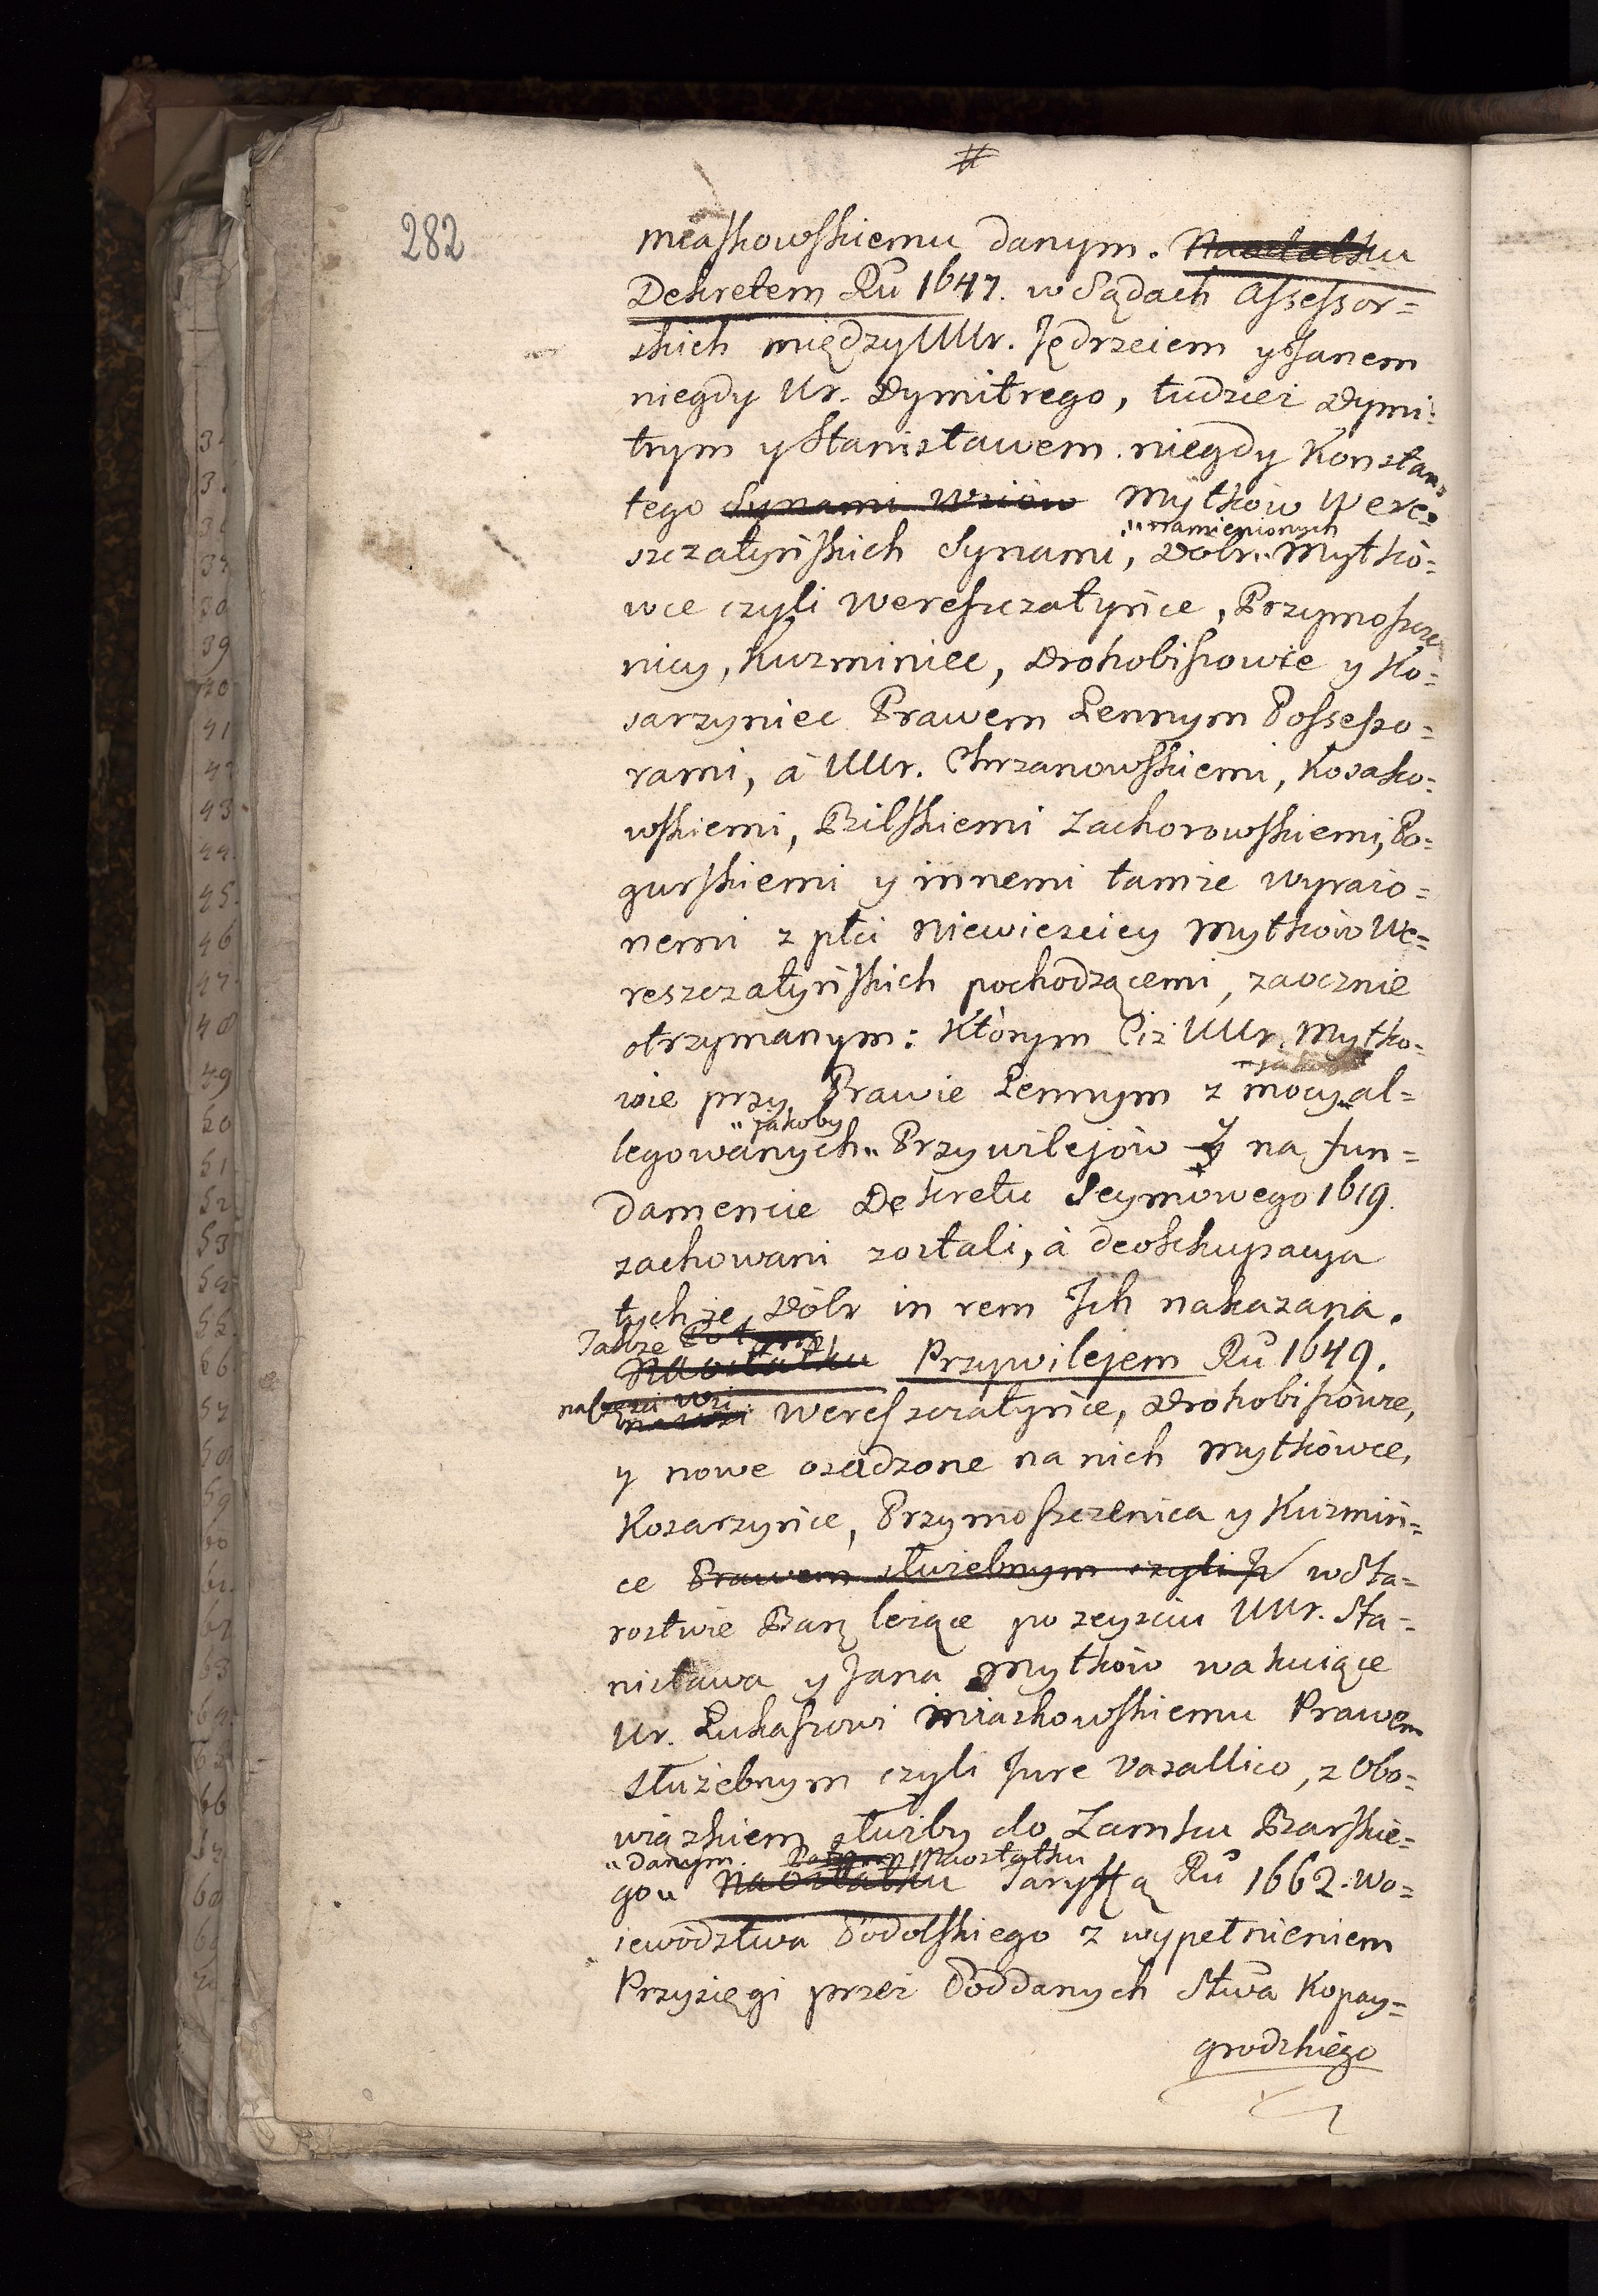 #
282
Miaskowskiemu danym. Naostatku
Dekretem Ru 1647. w Sądach Assessor=
skich między UUr. Jędrzeiem y Janem
niegdy Ur. Dymitrego, tudzież Dymi=
trym y Stanisławem niegdy Konstan=
tego Synami Wziów Mytków Were=
"namienionych
szczatyńskich Synami, Dobr" Mytko=
wce czyli Wereszczatyńce, Przymoszcze
nicy, Kuzminiec, Drohobiszowie y Ko=
sarzyniec Prawem Lennym Possesso=
rami, à UUr. Chrzanowskiemi, Kosako=
wskiemi, Bilskiemi Zachorowskiemi, Po=
gurskiemi y innemi tamże wyrażo=
nemi z płci Niewieściey Mytków We=
reszczatyńskich pochodzącemi, zaocznie
otrzymanym: Którym Ciż UUr. Mytko=
wie przy Prawie Lennym z mocy al=
"jakoby
legowanych" Przywilejów y na fun=
damencie Dekretu Seymowego 1619.
zachowani zostali, à deokkupacya
tychże Dóbr in rem Ich nakazana.
Tudzież Potym
Naostatku Przywilejem Ru 1649.
na Wsi
na Wsi Wereszczatyńce, Drohobiszowce,
y nowe osadzone na nich Mytkowce,
Kosarzyńce, Przymoszczenica y Kuzmiń=
ce Prawem służebnym czyli J w Sta=
rostwie Barz leżące po zeyściu UUr. Sta=
nisława y Jana Mytków wakuiące
Ur. Łukaszowi Miaskowskiemu Prawem
służebnym czyli Jure Vasallico, z Obo=
wiązkiem służby do Zamku Barskie=
"danym. Potym Naostatku
go" Naostatku Taryffą Ru 1662. Wo=
iewództwa Podolskiego z wypełnieniem
Przysięgi przez Poddanych Stwa Kopay=
grodzkiego